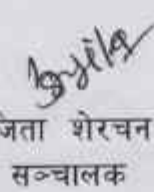 जिता शेरचन
सञ्चालक